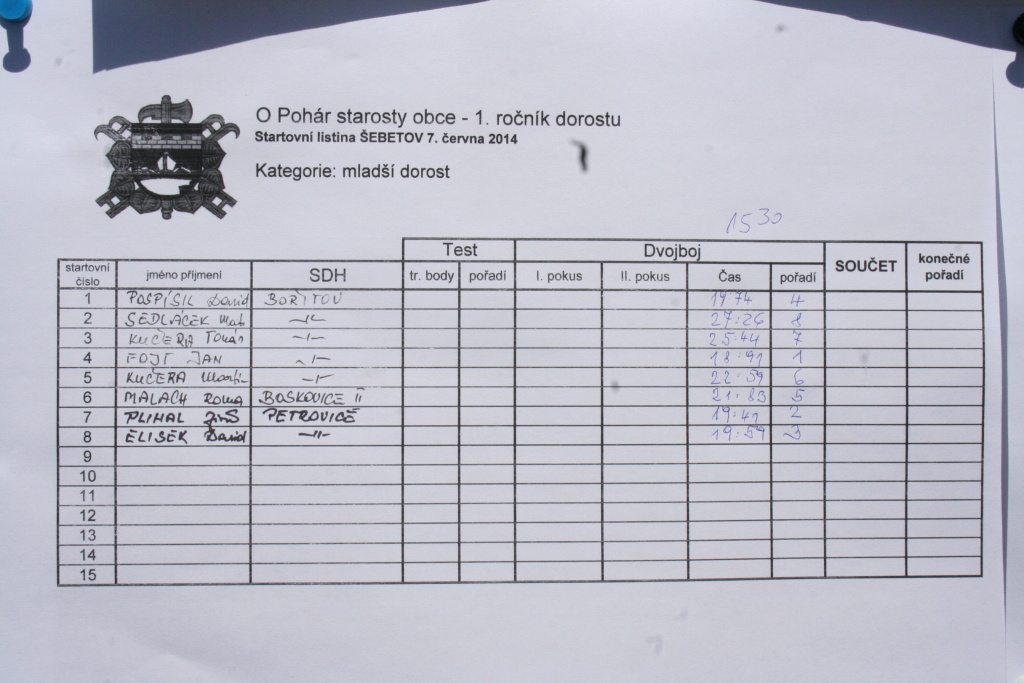 O Pohár starosty obce - 1. ročník dorostu
Startovní listina ŠEBETOV 7. června 2014
Kategorie: mladší dorost
15 30
Test Dvojboj SOUČET konečné pořadí
startovní číslo jméno příjmení SDH tr. body pořadí I. pokus II. pokus Čas pořadí
1 POSPÍŠIL David BOŘITOV 19:74 4
2 SEDLÁČEK -||- 27:26 8
3 KUČERA Tomáš -||- 25:44 7
4 FOJT JAN -||- 18:91 1
5 KUČERA Martin -||- 22:59 6
6 MALACH Roma BOSKOVICE II 21:83 5
7 PLIHAL Jiří PETROVICE 19:41 2
8 ELISEK David -||- 19:59 3
9
10
11
12
13
14
15